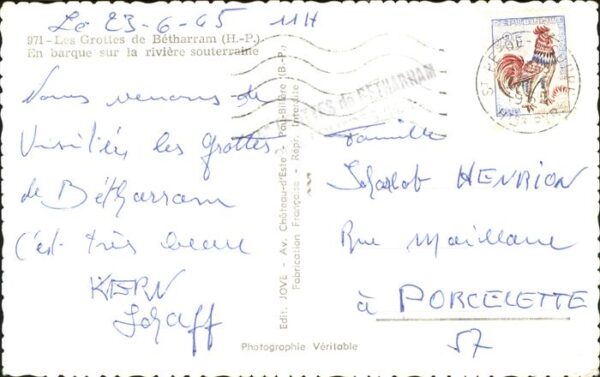 Le 23-6-65 11H
971 - Les Grottes de Bétharram (H.-P.)
En barque sur la rivière souterraine
Nous venons de
Visitées les Grottes
de Bétharram
c'est très beau
KERN
Schaff
Edit. JOVE - Av. Château-d'Este - Pau-Billère (B.-P.)
Fabrication Française - Repr. Interdite
Photographie Véritable
GROTTES de BETHARRAM
Famille
HENRION
Rue
à PORCELETTE
57